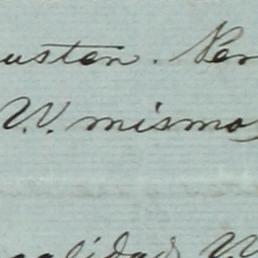 usten. Per
V. mismo
calidad V